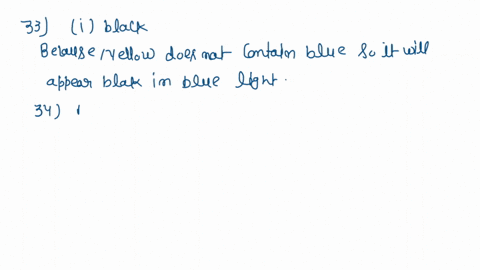 33) (i) black
Because, yellow does not contain blue so it will
appear black in blue light.
34) (